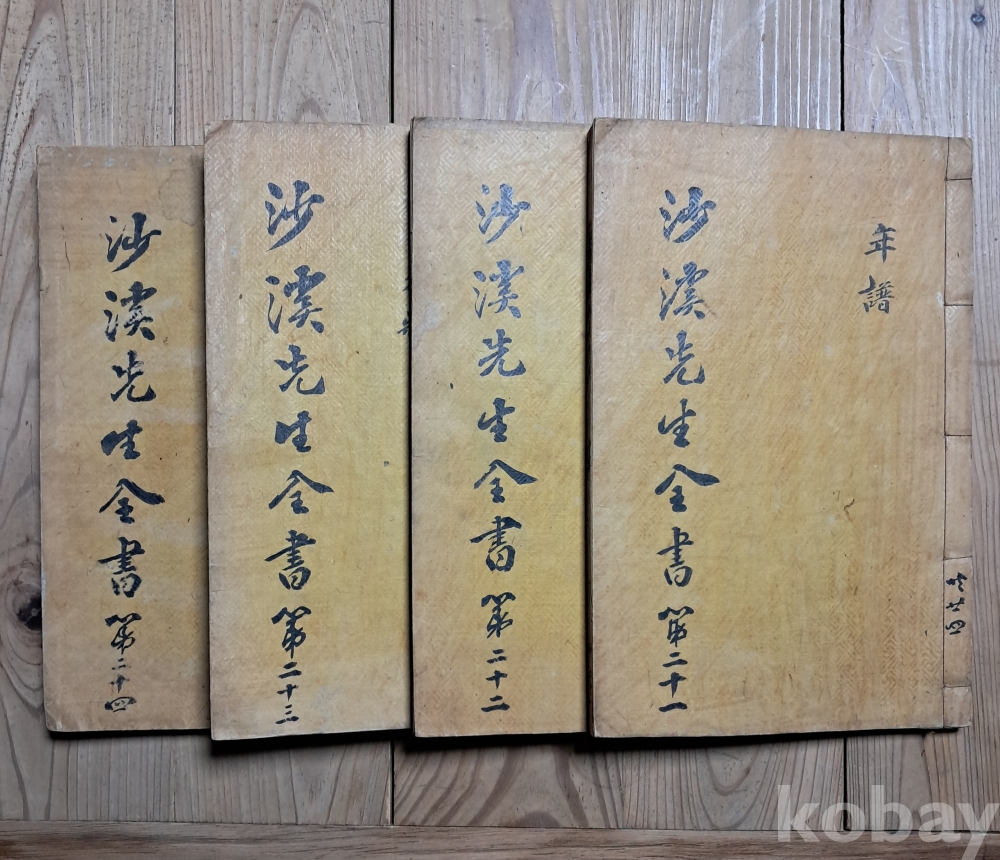 年譜
沙溪先生全書 第二十一
共廿四
沙溪先生全書 第二十二
沙溪先生全書 第二十三
沙溪先生全書 第二十四
kobay